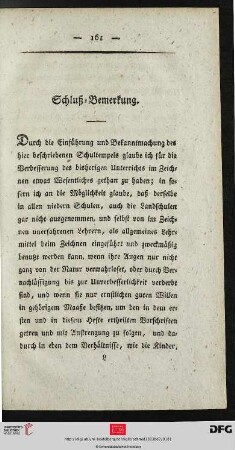 — 161 —
Schluß-Bemerkung.
Durch die Einführung und Bekanntmachung des
hier beschriebenen Schultempels glaube ich für die
Verbesserung des bisherigen Unterrichts im Zeich-
nen etwas Wesentliches gethan zu haben; in so-
fern ich an die Möglichkeit glaube, daß derselbe
in allen niedern Schulen, auch die Landschulen
gar nicht ausgenommen, und selbst von im Zeich-
nen unerfahrenen Lehrern, als allgemeines Lehr-
mittel beim Zeichnen eingeführt und zweckmäßig
benutzt werden kann, wenn ihre Augen nur nicht
ganz von der Natur verwahrloset, oder durch Ver-
nachlässigung bis zur Unverbesserlichkeit verderbt
sind, und wenn sie nur ernstlichen guten Willen
in gehörigem Maaße besitzen, um den in dem er-
sten und in diesem Hefte ertheilten Vorschriften
getreu und mit Anstrengung zu folgen, und da-
durch in eben dem Verhältnisse, wie die Kinder,
L
DFG